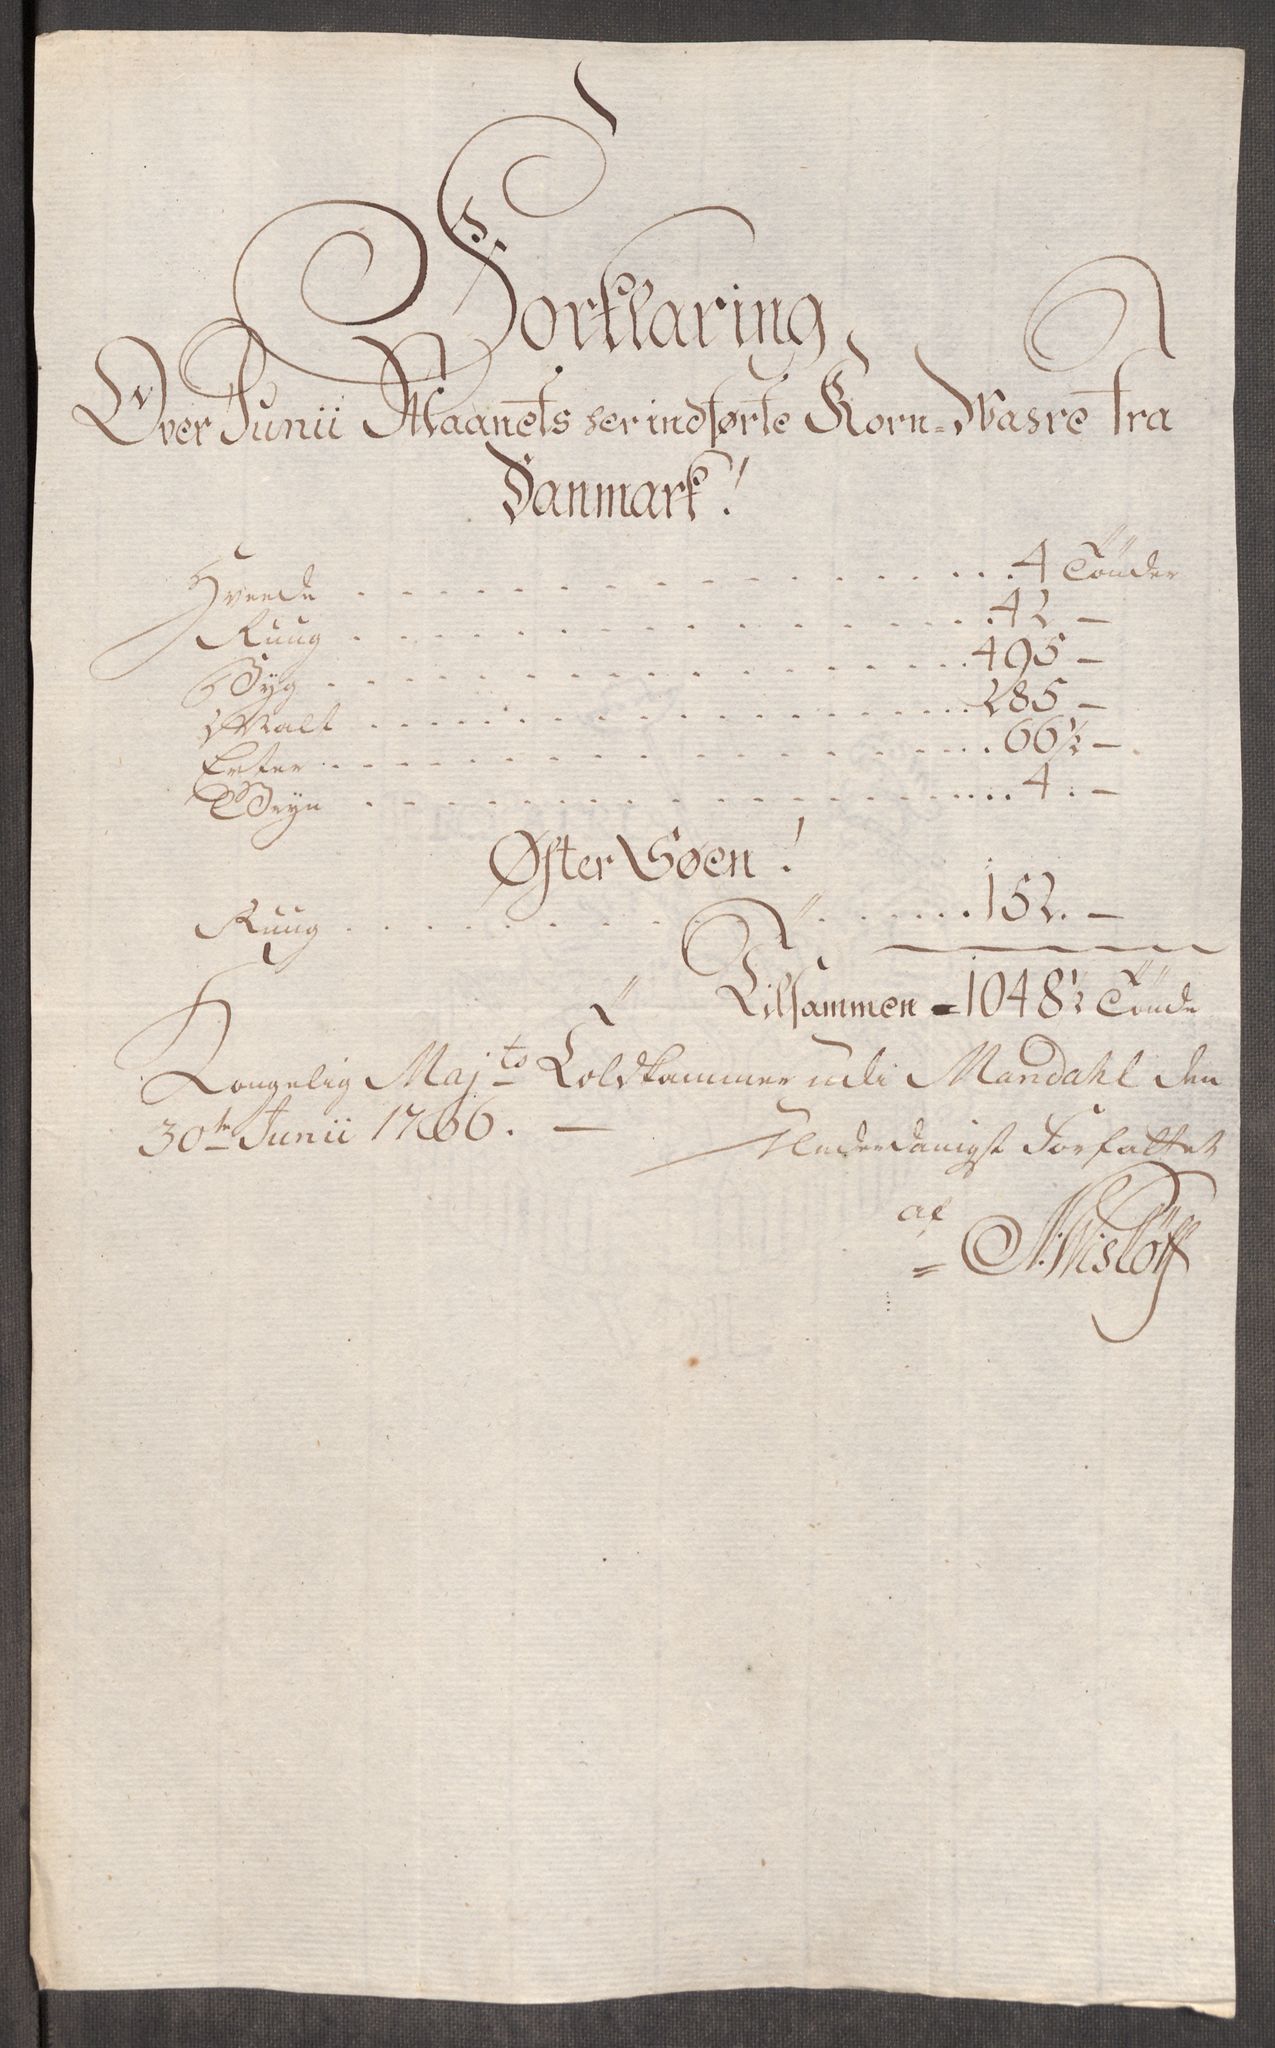 Forklaring
Over Junii Maanets her indførte Korn-Wahre fra
Danmark!
Hveede . . . 4 Tönder
Ruug . . . 42 —
Byg . . . 495 —
Malt . . . 285 —
Erter . . . 66½ —
Gryn . . . 4. —
Øster Søen!
Ruug . . . 152. —
Tilsammen = 1048½ Tönde
Kongelig Maj:ts Toldkammer udi Mandahl den
30te Junii 1766. —
Underdanigst Forfattet
af
N: Wisløff